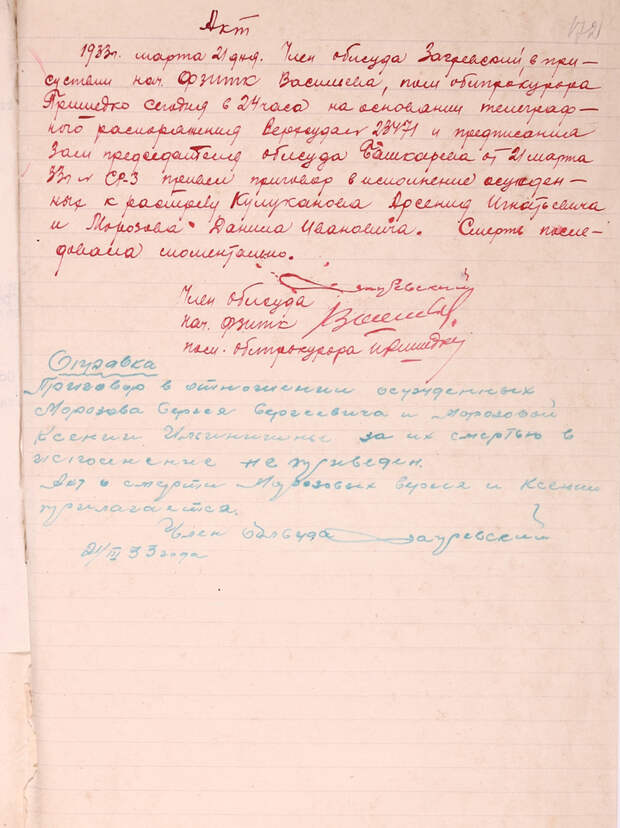 172
Акт
1933г. марта 21 дня. Член облсуда Загревский, в при-
сутствии нач. ФЗИТК Васильева, пом облпрокурора
Пришедко сегодня в 24 часа на основании телеграф-
ного распоряжения Верхсуда № 23471 и предписания
Зам председателя облсуда Башкарева от 21 марта
33г № СР-3 привел приговор в исполнение осужден-
ных к расстрелу Кулуканова Арсения Игнатьевича
и Морозова Данила Ивановича. Смерть после-
довала моментально.
Член облсуда
нач. ФЗИТК
пом. облпрокурора Пришедко
Справка
Приговор в отношении осужденных
Морозова Сергея Сергеевича и Морозовой
Ксении Ильиничны за их смертью в
исполнение не приведен.
Акт о смерти Морозовых Сергея и Ксении
прилагается.
Член Облсуда Загревский
21/III 33 года